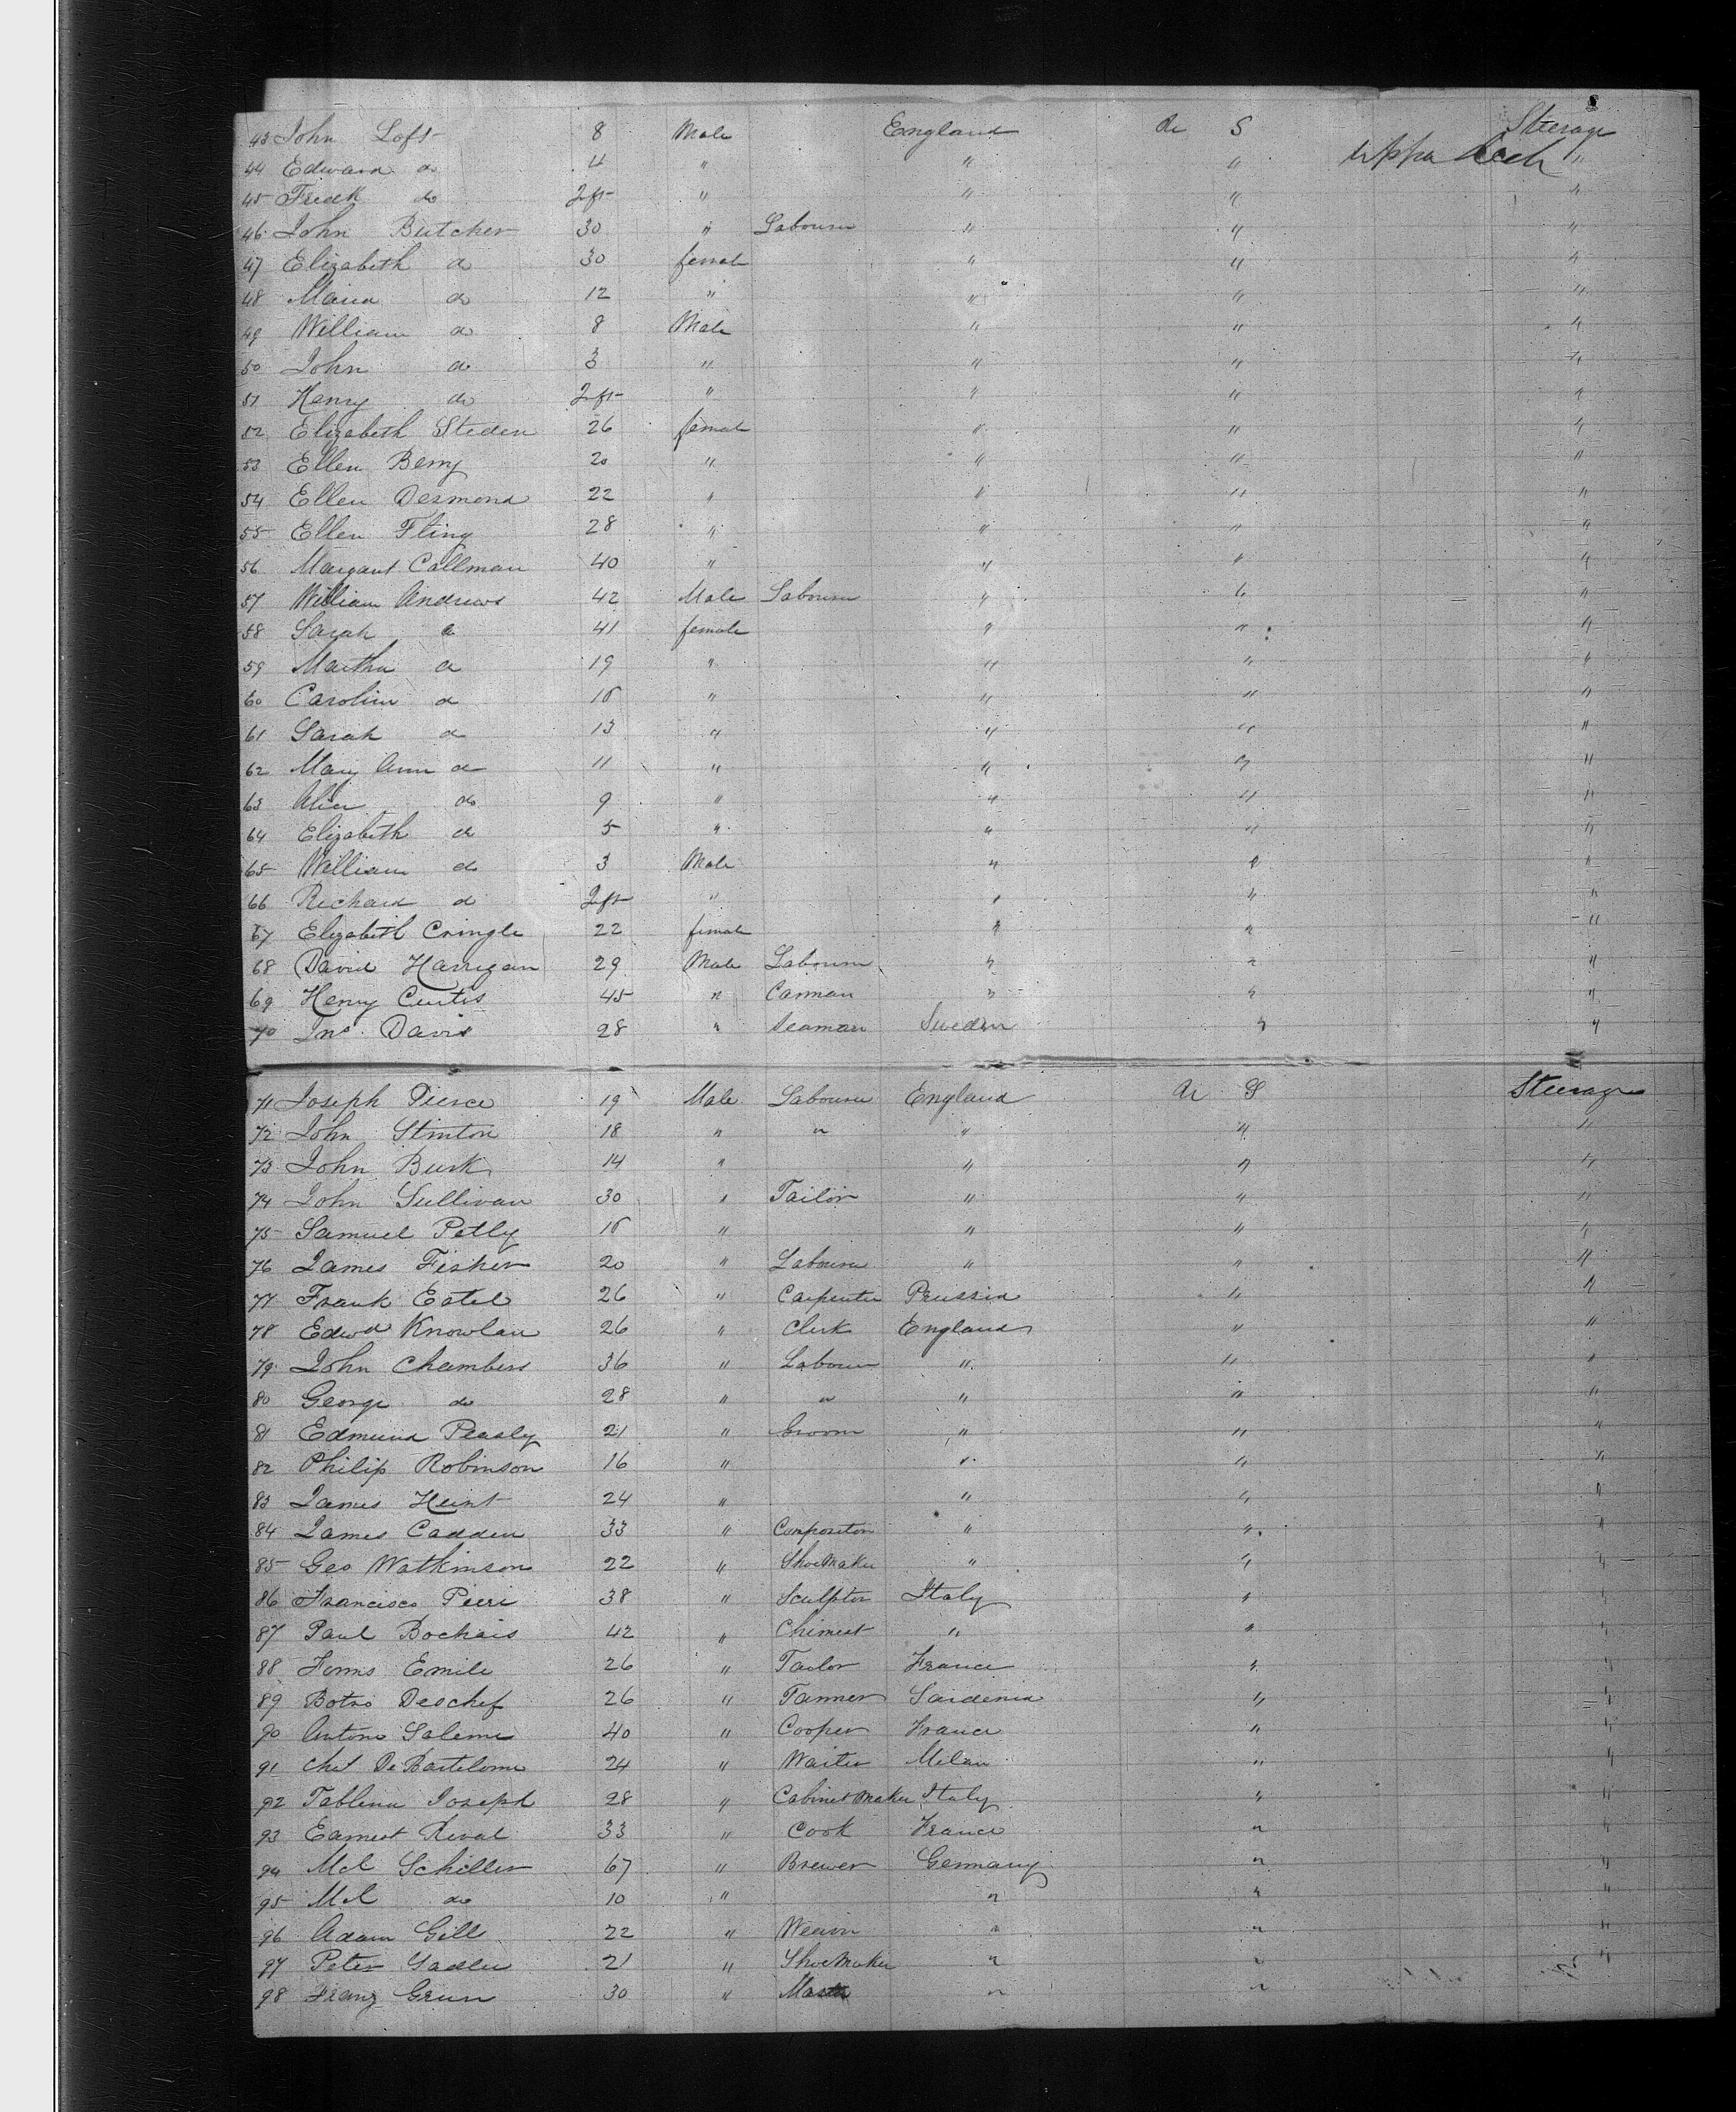 43 John Loft 8 Male England U S Steerage
44 Edward do 4 " " " Upper Deck "
45 Fredk do Inft " " " "
46 John Butcher 30 " Labourer " " "
47 Elizabeth do 30 female " " "
48 Maria do 12 " " " "
49 William do 8 Male " " "
50 John do 3 " " " "
51 Henry do Inft " " " "
52 Elizabeth Steden 26 female " " "
53 Ellen Berry 20 " " " "
54 Ellen Desmond 22 " " " "
55 Ellen Fling 28 " " " "
56 Margaret Callman 40 " " " "
57 William Andrews 42 Male Labourer " " "
58 Sarah do 41 female " " "
59 Martha do 19 " " " "
60 Caroline do " " " "
61 Sarah do 13 " " " "
62 Mary Ann do 11 " " " "
63 Alice do 9 " " " "
64 Elizabeth do 5 " " " "
65 William do 3 Male " " "
66 Richard do Inft " " " "
67 Elizabeth Cringle 22 female " " "
68 David Harrigan 29 Male Labourer " " "
69 Henry Curtis 45 " Carman " " "
70 Jno. Davis 28 " Seaman Sweden " "
71 Joseph Pierce 19 Male Labourer England U S Steerage
72 John Stinton 18 " " " " "
73 John Burk 14 " " " "
74 John Sullivan 30 " Tailor " " "
75 Samuel Petly " " " "
76 James Fisher 20 " Labourer " " "
77 Frank Eatel 26 " Carpenter Prussia " "
78 Edwd Knowlan 26 " Clerk England " "
79 John Chambers 36 " Labourer " " "
80 George do 28 " " " " "
81 Edmund Peasly 21 " Groom " " "
82 Philip Robinson 16 " " " "
83 James Hunt 24 " " " "
84 James Cadden 33 " Compositor " " "
85 Geo Watkinson 22 " Shoe Maker " " "
86 Francisco Pieri 38 " Sculptor Italy " "
87 Paul Bochais 42 " Chimest " " "
88 Ferms Emile 26 " Tailor France " "
89 Botro Deschef 26 " Tanner Sardenia " "
90 Antoni Salemi 40 " Cooper France " "
91 Chet De Bartelome 24 " Waiter Milan " "
92 Tablena Joseph 28 " Cabinet Maker Italy " "
93 Earnest Reval 33 " Cook France " "
94 Mcl Schiller 67 " Brewer Germany " "
95 Mcl do 10 " " " "
96 Adam Gill 22 " Weaver " " "
97 Peter Sadler 21 " Shoe Maker " " "
98 Franz Grun 30 " " " "